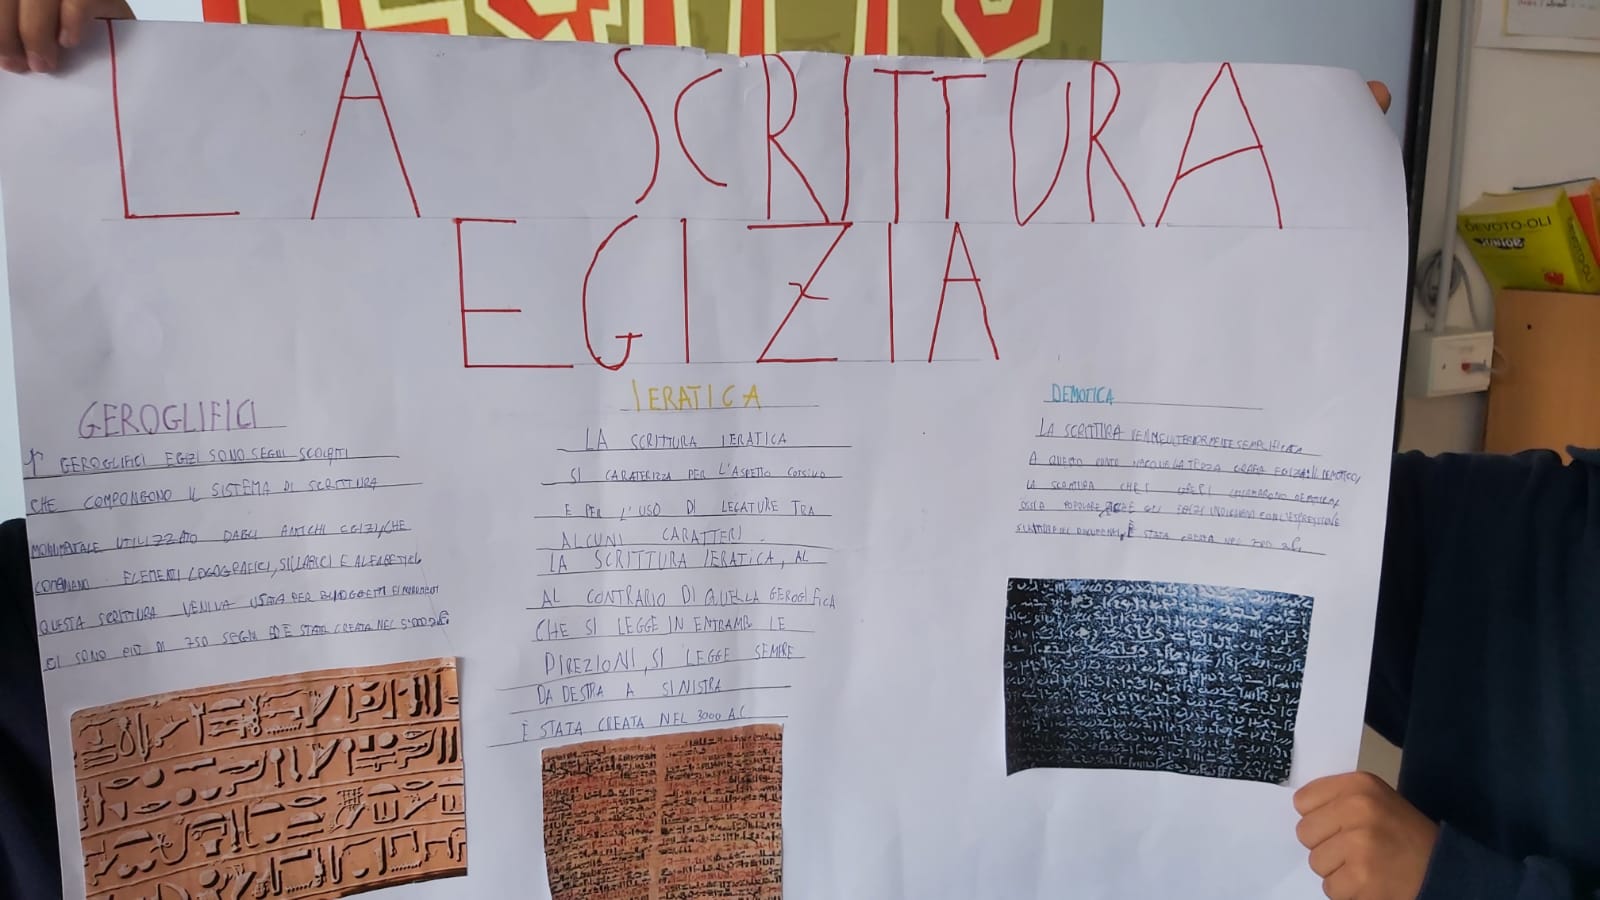 LA SCRITTURA
EGIZIA
GEROGLIFICI
I GEROGLIFICI EGIZI SONO SEGNI SCOLPITI
CHE COMPONGONO IL SISTEMA DI SCRITTURA
MONUMENTALE UTILIZZATO DAGLI ANTICHI EGIZI, CHE
COMBINANO ELEMENTI LOGOGRAFICI, SILLABICI E ALFABETICI.
QUESTA SCRITTURA VENIVA USATA PER
CI SONO PIÙ DI 750 SEGNI ED È STATA CREATA NEL
IERATICA
LA SCRITTURA IERATICA
SI CARATERIZZA PER L'ASPETTO CORSIVO
E PER L'USO DI LEGATURE TRA
ALCUNI CARATTERI.
LA SCRITTURA IERATICA, AL
AL CONTRARIO DI QUELLA GEROGLIFICA
CHE SI LEGGE IN ENTRAMBE LE
DIREZIONI, SI LEGGE SEMPRE
DA DESTRA A SINISTRA
È STATA CREATA NEL 3000 A.C
DEMOTICA
LA SCRITTURA VENNE ULTERIORMENTE SEMPLIFICATA
A QUESTO PUNTO NACQUE LA TERZA GRAFIA EGIZIA: IL DEMOTICO,
LA SCRITTURA CHE I GRECI CHIAMARONO DEMOTICA,
OSSIA POPOLARE, GLI EGIZI INDICAVANO CON L'ESPRESSIONE
SCRITTURA DEI DOCUMENTI, È STATA CREATA NEL
DEVOTO-OLI
JUNIOR